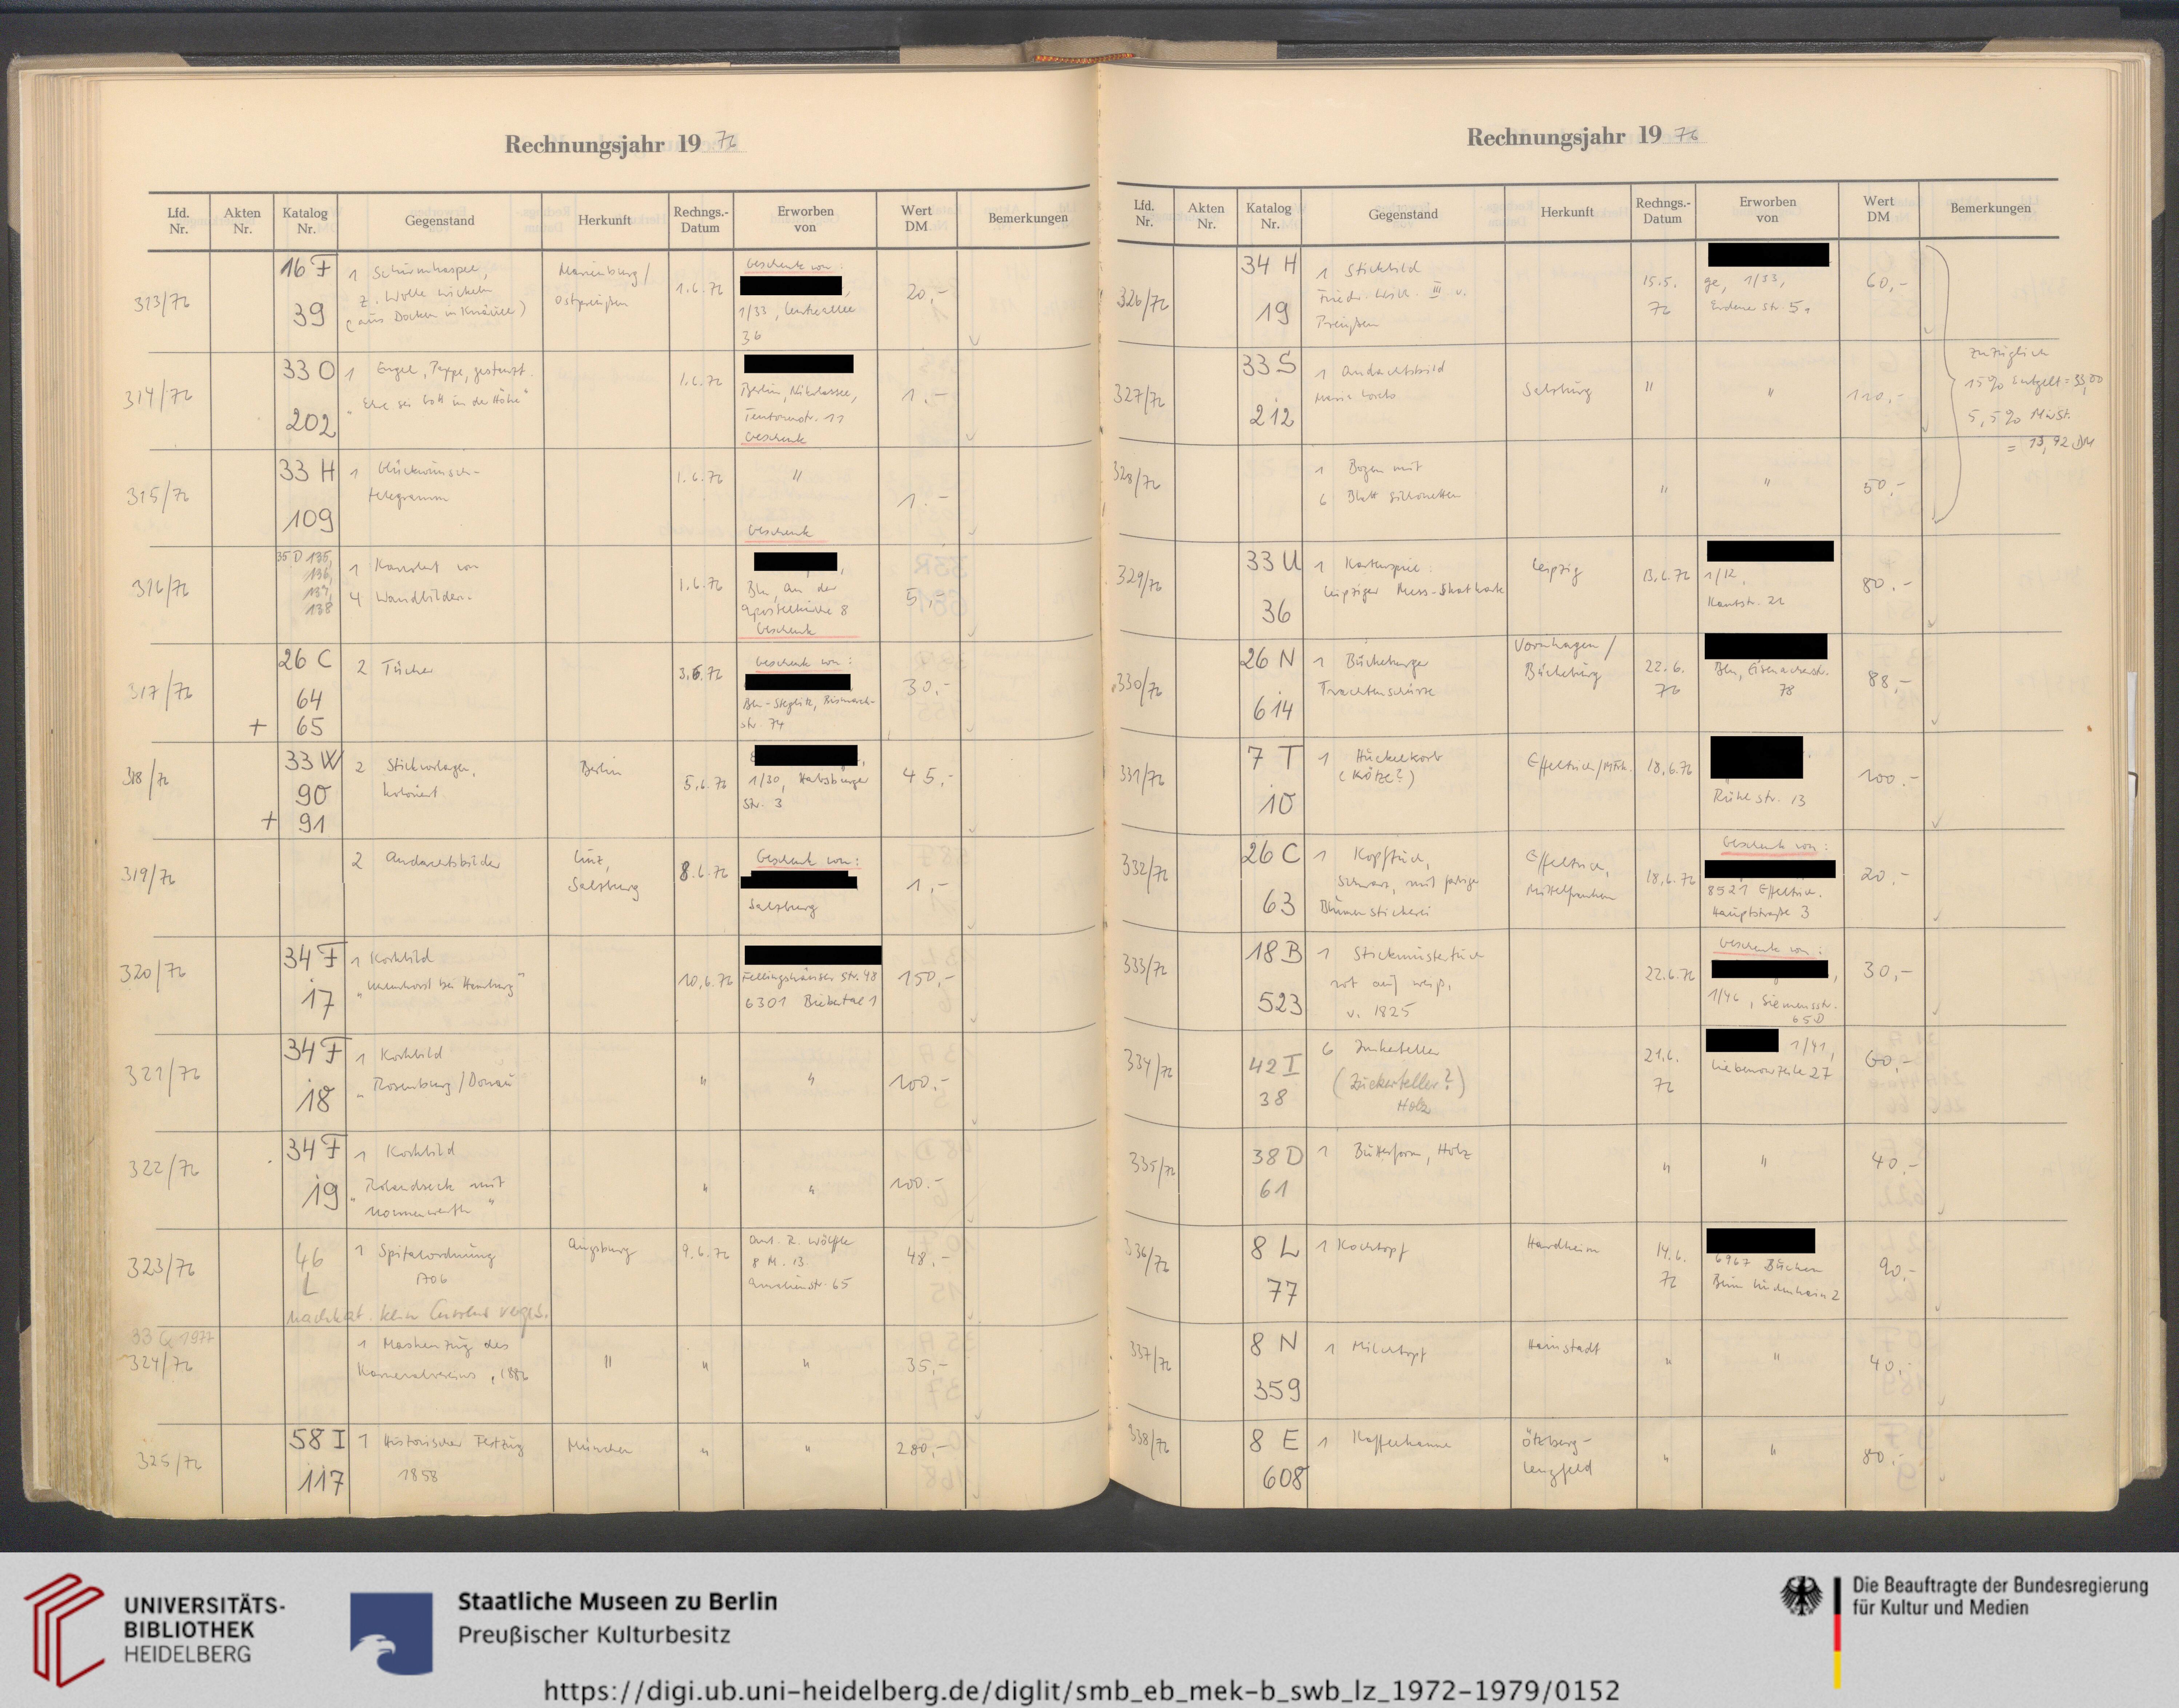 Rechnungsjahr 19 76
Lfd. Nr.
Akten Nr.
Katalog Nr.
Gegenstand
Herkunft
Rechngs.-Datum
Erworben von
Wert DM
Bemerkungen
313/76
16 F
39
1 Schirmhaspel,
z. Wolle wickeln
(aus Docken in Knäuel)
Marienburg/
Ostpreußen
1.6.76
Geschenk von:
1/33,
36
20,-
314/76
33 O
202
1 Engel, Pappe, gestanzt.
"Ehre sei Gott in der Höhe"
1.6.76
Berlin, Nikolassee,
Teutonenstr. 11
Geschenk
1.-
315/76
33 H
109
1 Glückwunsch-
telegramm
1.6.76
"
Geschenk
1.-
316/76
35 D 135,
136,
137,
138
1 Konvolut von
4 Wandbildern.
1.6.76
Bln, An der
Apostelkirche 8
Geschenk
5,-
317/76
26 C
64
+ 65
2 Tücher
3.6.76
Geschenk von:
Bln-Steglitz, Bismarck-
str. 74
30.-
318/76
33 W
90
+ 91
2 Stickvorlagen,
koloriert
Berlin
5.6.76
1/30, Habsburger
Str. 3
45,-
319/76
2 Andachtsbilder
Linz,
Salzburg
8.6.76
Geschenk von:
Salzburg
1,-
320/76
34 F
17
1 Korkbild
10.6.76
Fellingshäuser Str. 48
6301 Biebertal 1
150,-
321/76
34 F
18
1 Korkbild
"Rosenburg/Donau
"
"
100.-
322/76
34 F
19
1 Korkbild
"Rolandseck mit
Nonnenwerth"
"
"
100.-
323/76
46
L
1 Spitalordnung
1706
Augsburg
9.6.76
Ant. R. Wölfle
8 M. 13.
Amalienstr. 65
48.-
33 G 1977
324/76
1 Maskenzug des
Karnevalvereins, 1886
"
"
"
35,-
325/76
58 I
117
1 Historischer Festzug
1858
München
"
"
280,-
Rechnungsjahr 19 76
Lfd. Nr.
Akten Nr.
Katalog Nr.
Gegenstand
Herkunft
Rechngs.-Datum
Erworben von
Wert DM
Bemerkungen
326/76
34 H
19
1 Stickbild
Friedr. Wilh. III v.
Preußen
15.5.
76
ge, 1/33,
Erdener Str. 5a
60,-
zuzüglich
15% Entgelt = 33,00
5,5% MwSt.
= 13,92 DM
327/76
33 S
212
1 Andachtsbild
Maria Loreto
Salzburg
"
"
110,-
328/76
1 Bogen mit
6 Blatt Silhouetten
"
"
50,-
329/76
33 U
36
1 Kartenspiel:
Leipziger Mess-Skatkarte
Leipzig
13.6.76
1/12,
Kantstr. 21
80.-
330/76
26 N
614
1 Bückeburger
Trachtenschürze
Vornhagen/
Bückeburg
22.6.
76
Bln, Eisenacherstr.
78
88,-
331/76
7 T
10
1 Huckelkorb
(Kötze?)
Effeltrich/Mfrk.
18.6.76
Rühlstr. 13
100.-
332/76
26 C
63
1 Kopftuch,
Schwarz, mit farbiger
Blumenstickerei
Effeltrich,
Mittelfranken
18.6.76
Geschenk von:
8521 Effeltrich.
Hauptstraße 3
20.-
333/76
18 B
523
1 Stickmustertuch
rot auf weiß,
v. 1825
22.6.76
Geschenk von:
1/46, Siemensstr.
65D
30,-
334/76
42 I
38
6 Imkerteller
(Zuckerteller?)
Holz
21.6.
76
1/41,
Liebenowzeile 27
60.-
335/76
38 D
61
1 Butterform, Holz
"
"
40.-
336/76
8 L
77
1 Kochtopf
Hardheim
14.6.
76
6967 Buchen
Beim Lindenhain 2
90.-
337/76
8 N
359
1 Milchtopf
Hainstadt
"
"
40.-
338/76
8 E
608
1 Kaffeekanne
Otzberg-
Lengfeld
"
"
80.-
UNIVERSITÄTS-
BIBLIOTHEK
HEIDELBERG
Staatliche Museen zu Berlin
Preußischer Kulturbesitz
Die Beauftragte der Bundesregierung
für Kultur und Medien
https://digi.ub.uni-heidelberg.de/diglit/smb_eb_mek-b_swb_lz_1972-1979/0152